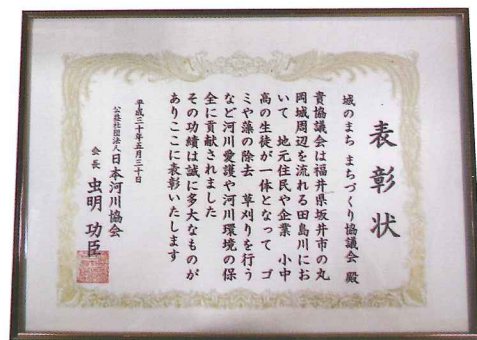 表彰状
城のまち まちづくり協議会 殿
貴協議会は福井県坂井市の丸
岡城周辺を流れる田島川にお
いて 地元住民や企業 小中
高の生徒が一体となって ゴ
ミや藻の除去 草刈りを行う
など河川愛護や河川環境の保
全に貢献されました
その功績は誠に多大なものが
ありここに表彰いたします
平成三十年五月三十日
公益社団法人日本河川協会
会長 虫明功臣